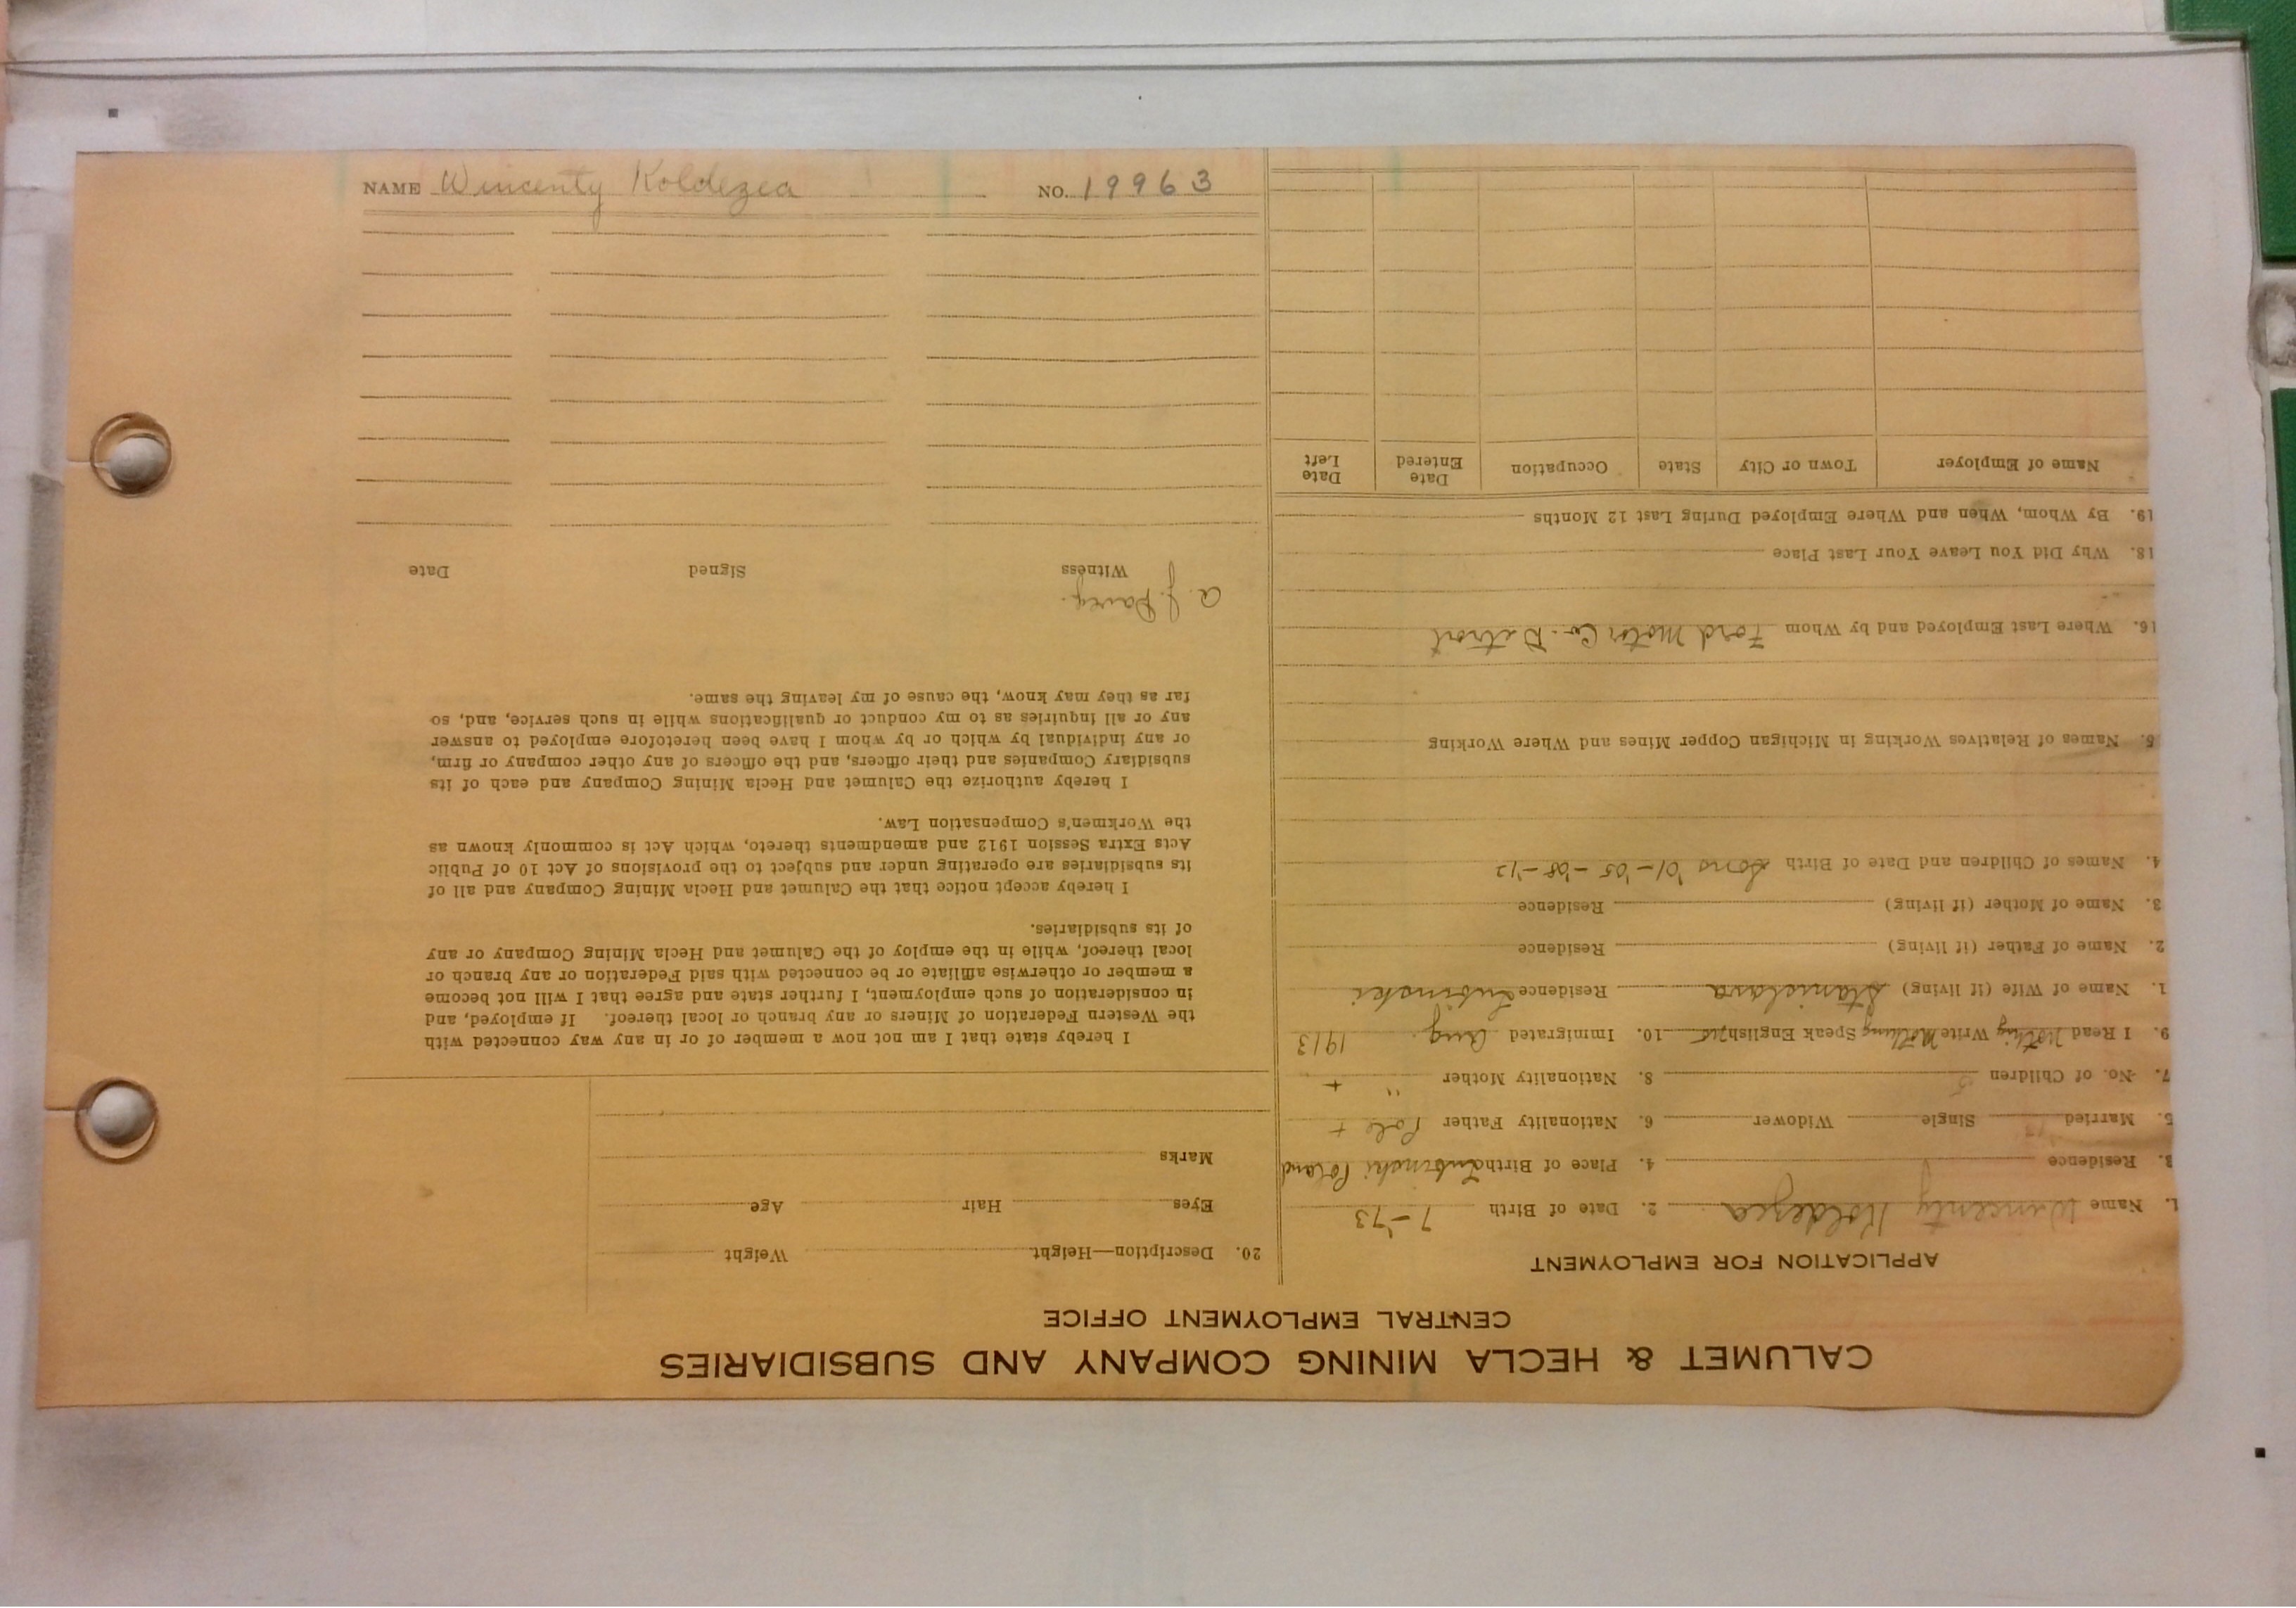 NAME Wincenty Koldezea NO. 19963
CALUMET & HECLA MINING COMPANY AND SUBSIDIARIES
CENTRAL EMPLOYMENT OFFICE
APPLICATION FOR EMPLOYMENT
1. Name Wincenty Koldezea 2. Date of Birth 7-'73
3. Residence 4. Place of Birth Lubinski Poland
5. Married Single Widower 6. Nationality Father Pole +
7. No. of Children 5 8. Nationality Mother " +
9. I Read Nothing Write Nothing Speak English 10. Immigrated Aug. 1913
1. Name of Wife (if living) Stanislava Residence Lubinski
2. Name of Father (if living) Residence
3. Name of Mother (if living) Residence
4. Names of Children and Date of Birth Sons '01-'05-'08-'12
5. Names of Relatives Working in Michigan Copper Mines and Where Working
16. Where Last Employed and by Whom Ford Motor Co. Detroit
18. Why Did You Leave Your Last Place
19. By Whom, When and Where Employed During Last 12 Months
Name of Employer Town or City State Occupation Date Entered Date Left
20. Description—Height Weight
Eyes Hair Age
Marks
I hereby state that I am not now a member of or in any way connected with
the Western Federation of Miners or any branch or local thereof. If employed, and
in consideration of such employment, I further state and agree that I will not become
a member or otherwise affiliate or be connected with said Federation or any branch or
local thereof, while in the employ of the Calumet and Hecla Mining Company or any
of its subsidiaries.
I hereby accept notice that the Calumet and Hecla Mining Company and all of
its subsidiaries are operating under and subject to the provisions of Act 10 of Public
Acts Extra Session 1912 and amendments thereto, which Act is commonly known as
the Workmen's Compensation Law.
I hereby authorize the Calumet and Hecla Mining Company and each of its
subsidiary Companies and their officers, and the officers of any other company or firm,
or any individual by which or by whom I have been heretofore employed to answer
any or all inquiries as to my conduct or qualifications while in such service, and, so
far as they may know, the cause of my leaving the same.
A. J. Davey.
Witness Signed Date